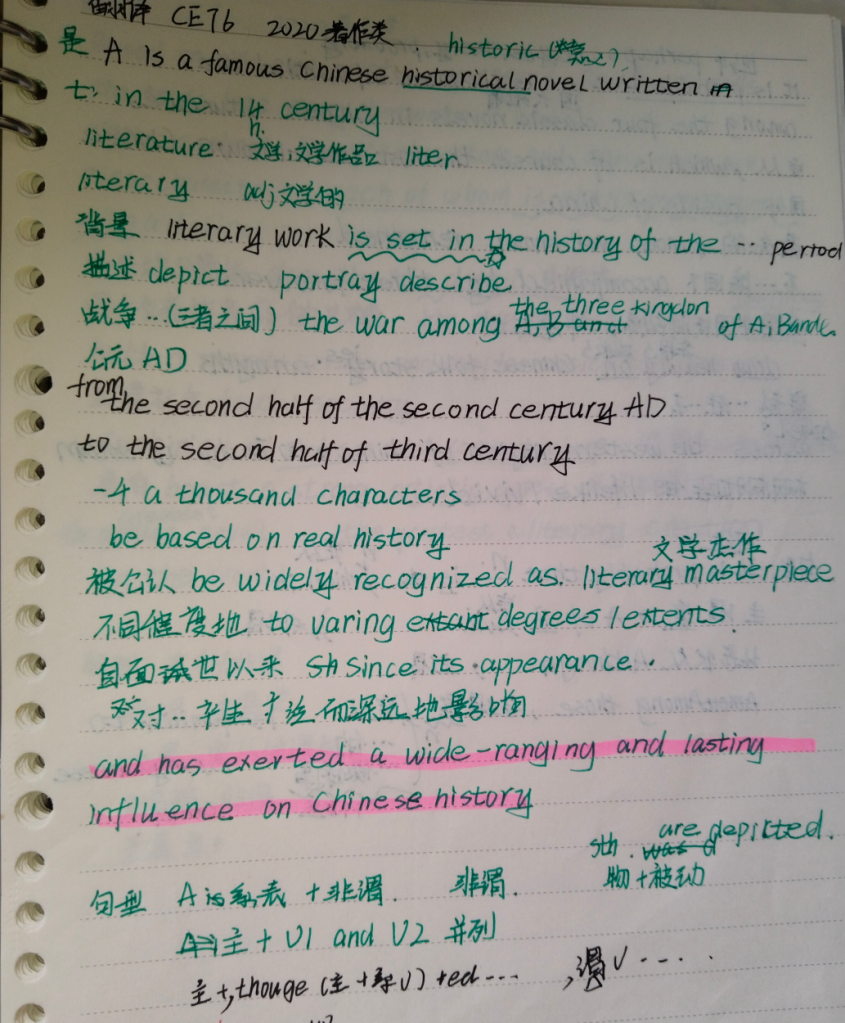 翻译 CET6 2020著作类. historic (
是 A is a famous Chinese historical novel written in
t: in the 14 century
literature n. 文学,文学作品 liter.
literary adj文学的
背景 literary work is set in the history of the … period
描述 depict portray describe
战争…(三者之间) the war among A,B and the three kingdon of A,Bandc.
公元 AD
from the second half of the second century AD
to the second half of third century
-4 a thousand characters
be based on real history
文学杰作
被公认 be widely recognized as. literary masterpiece
不同程度地 to varing extant degrees / extents.
自面世以来 sh since its appearance.
对..产生广泛而深远地影响
and has exerted a wide-ranging and lasting
influence on Chinese history
sth. was d are depicted.
句型 A is 系表 +非谓. 非谓. 物+被动
主 + V1 and V2 并列
主+, thouge (主+ V) +ed … , 谓V ….